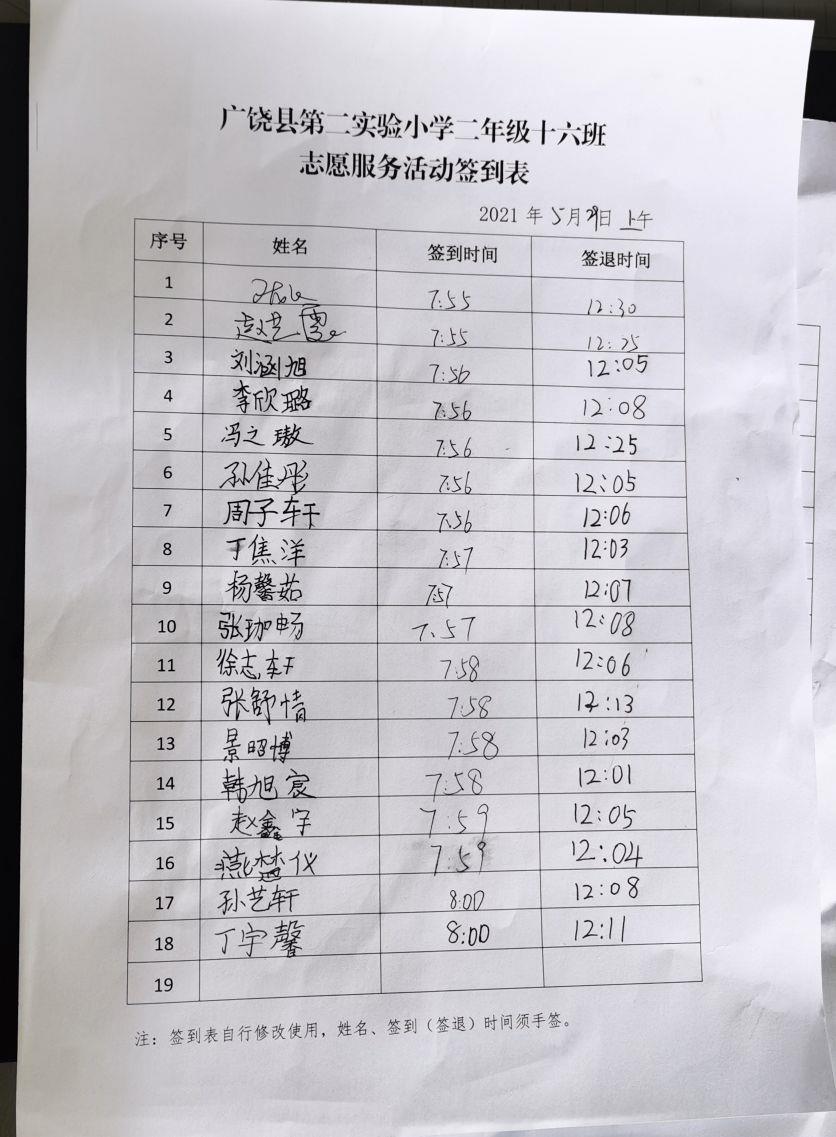 广饶县第二实验小学二年级十六班
志愿服务活动签到表
2021 年 5月29日 上午
序号 姓名 签到时间 签退时间
1 7:55 12:30
2 赵艺雪 7:55 12:25
3 刘涵旭 7:56 12:05
4 李欣璐 7:56 12:08
5 冯之璈 7:56 12:25
6 孙佳彤 7:56 12:05
7 周子轩 7:56 12:06
8 丁焦洋 7:57 12:03
9 杨馨茹 7:57 12:07
10 张珈畅 7:57 12:08
11 徐志轩 7:58 12:06
12 张舒情 7:58 12:13
13 景昭博 7:58 12:03
14 韩旭宸 7:58 12:01
15 赵鑫宇 7:59 12:05
16 燕楚仪 7:59 12:04
17 孙艺轩 8:00 12:08
18 丁宇馨 8:00 12:11
19
注：签到表自行修改使用，姓名、签到（签退）时间须手签。